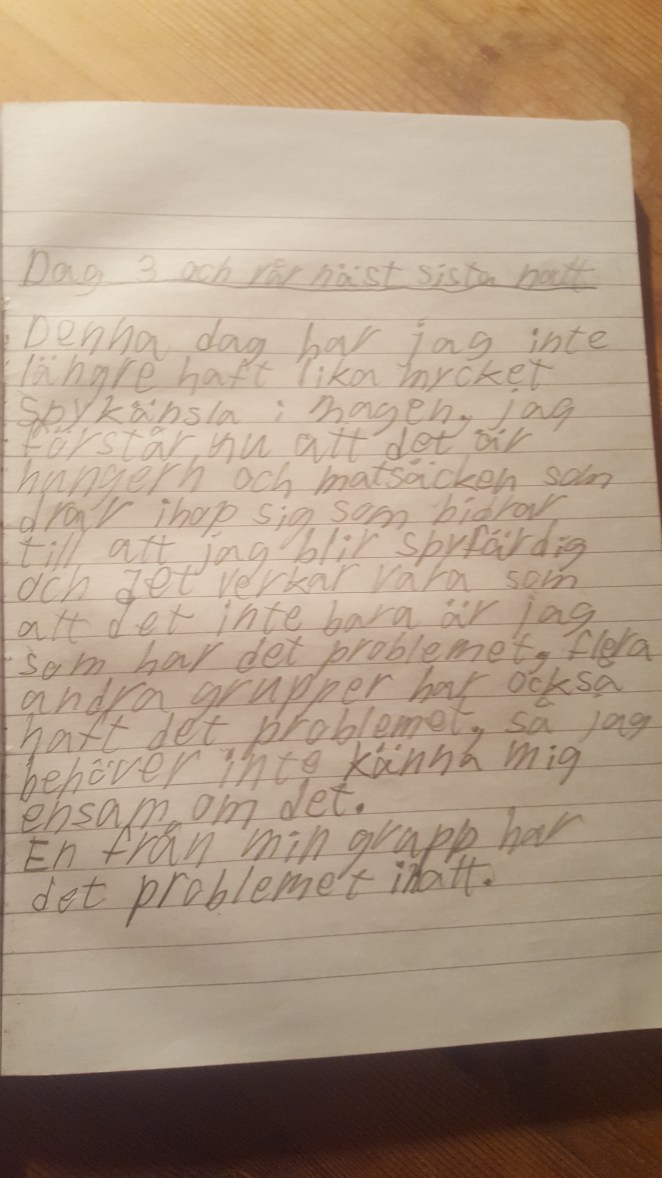 Dag 3 och vår näst sista natt
Denna dag har jag inte
längre haft lika mycket
spykänsla i magen, jag
förstår nu att det är
hungern och matsäcken som
drar ihop sig som bidrar
till att jag blir spyfärdig
och det verkar vara som
att det inte bara är jag
som har det problemet, flera
andra grupper har också
haft det problemet, så jag
behöver inte känna mig
ensam om det.
En från min grupp har
det problemet inatt.